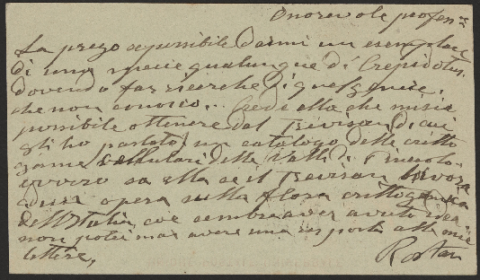 Onorevole profess.re
La prego se possibile darmi un esemplare
di una specie qualunque di Crepidotus
dovendo far ricerche di quel genere
che non conosco. Crede ella che mi sia
possibile ottenere dal Trevisan di cui
gli ho parlato, un catalogo delle critto
game cellulari delle Valli di Pinerolo
ovvero sa ella se il Trevisan lavora
ad una opera sulla flora crittogamica
dell'Italia, che sembra aver avuto idea
non potei mai avere una risposta alle mie
lettere,
Rostan